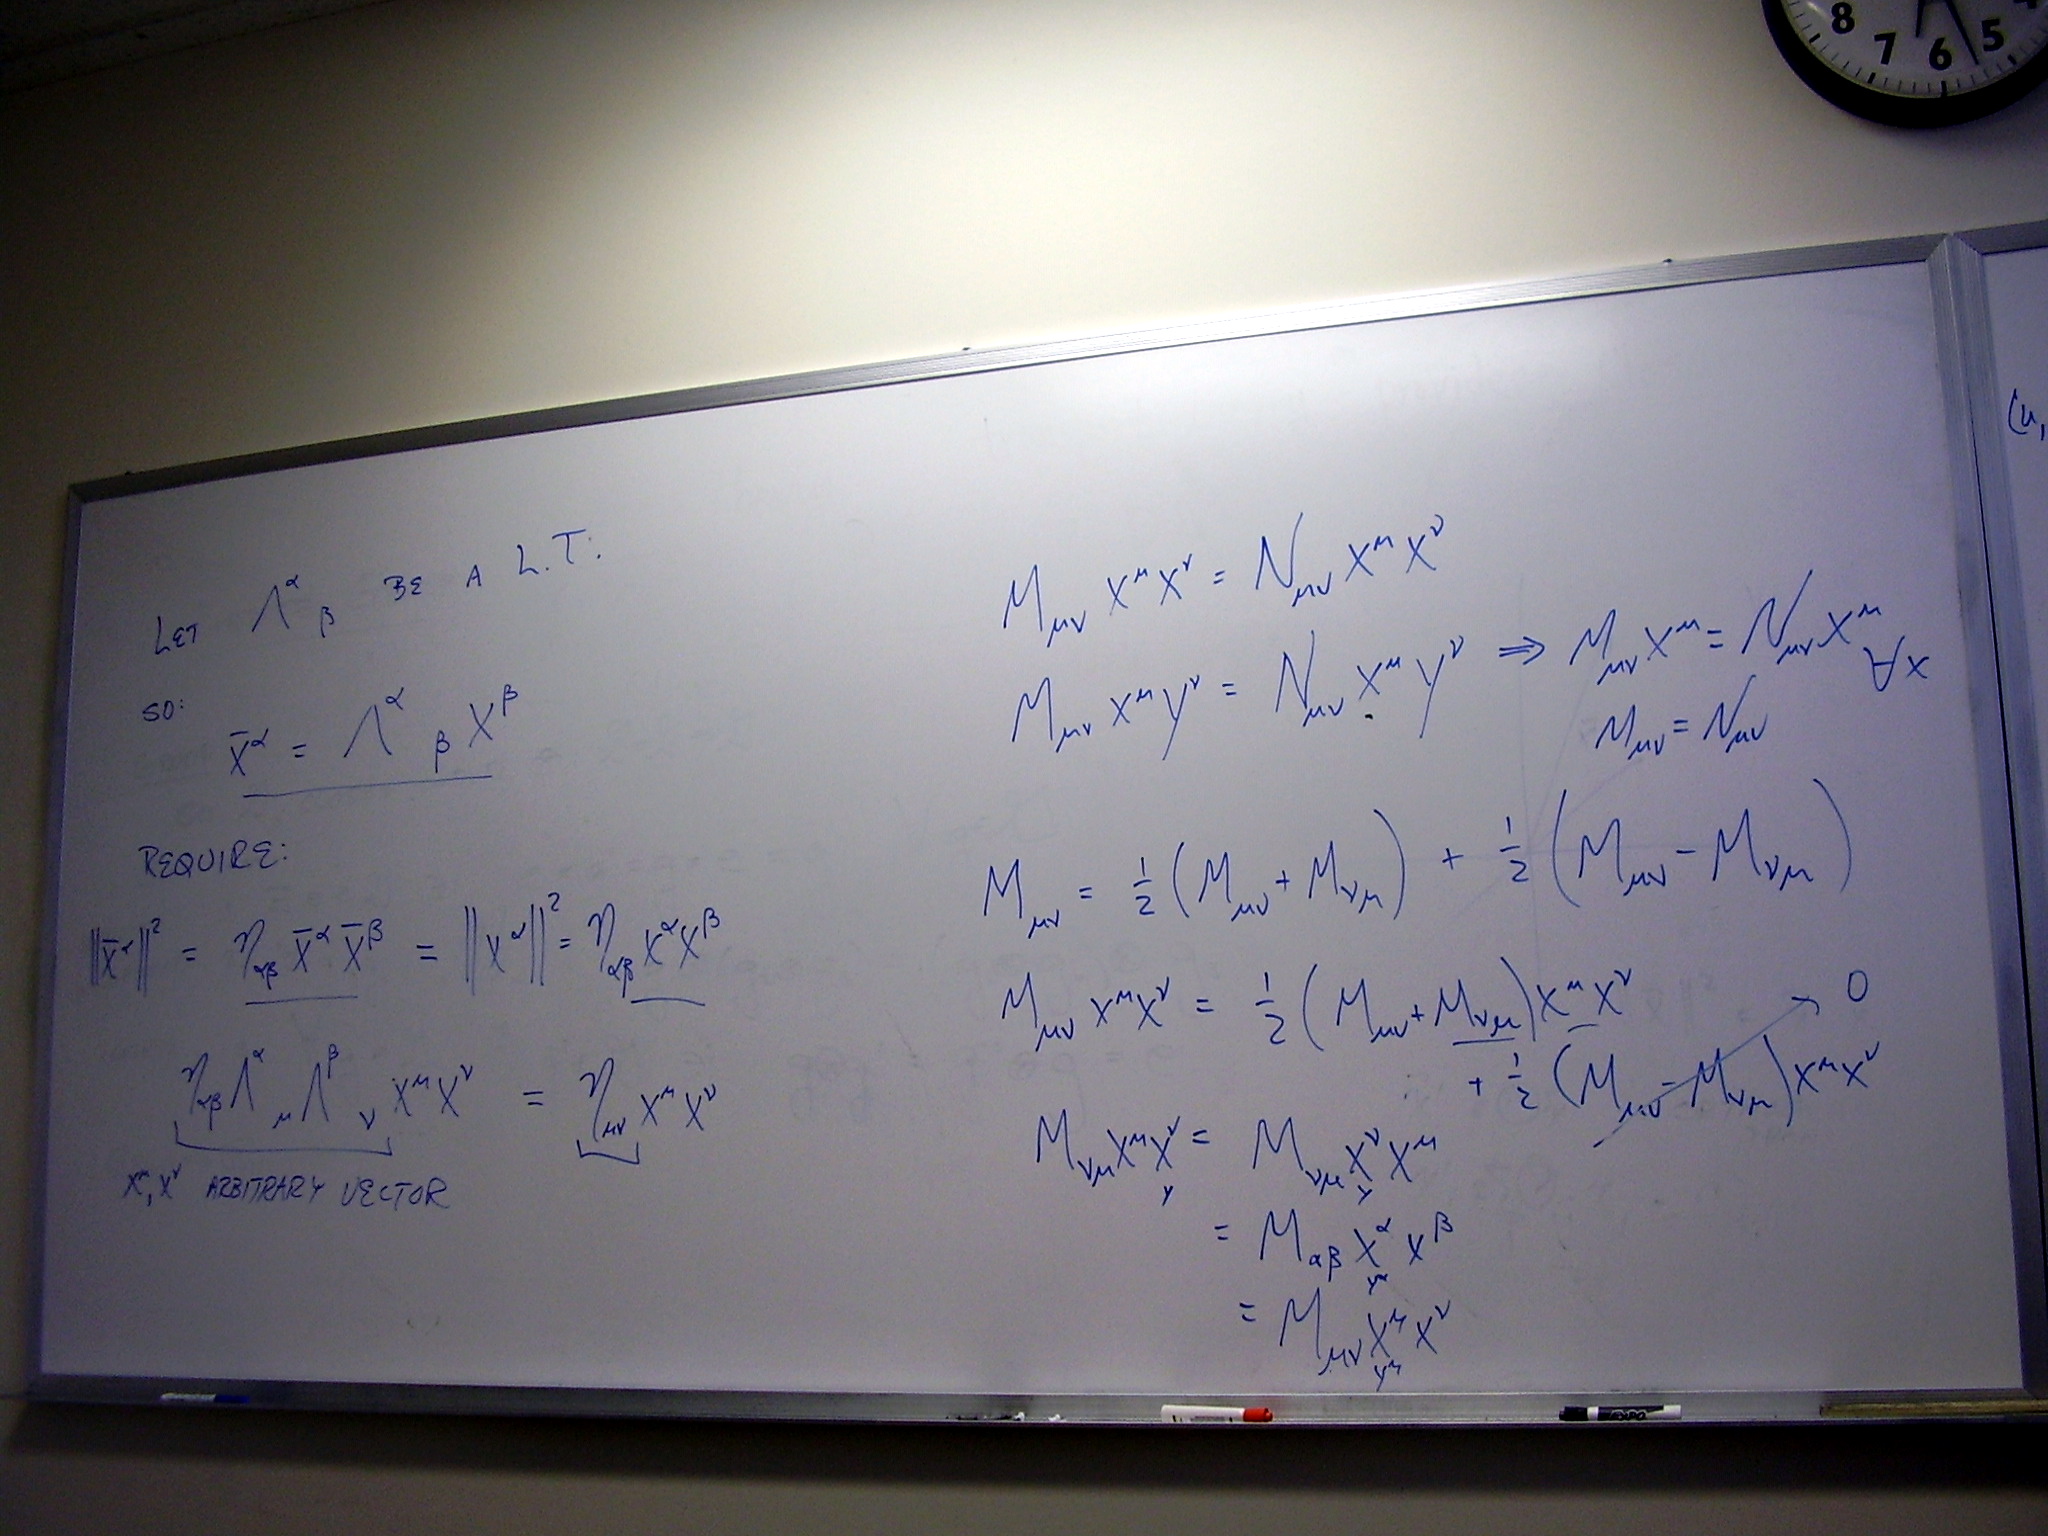 8 7 6 5 4
LET Λ^α_β BE A L.T:
SO:
x̄^α = Λ^α_β x^β
REQUIRE:
||x̄^α||² = η_αβ x̄^α x̄^β = ||x^α||² = η_αβ x^α x^β
η_αβ Λ^α_μ Λ^β_ν x^μ x^ν = η_μν x^μ x^ν
x^μ, x^ν ARBITRARY VECTOR
M_μν x^μ x^ν = N_μν x^μ x^ν
M_μν x^μ y^ν = N_μν x^μ y^ν ⇒ M_μν x^μ = N_μν x^μ ∀x
M_μν = N_μν
M_μν = 1/2 (M_μν + M_νμ) + 1/2 (M_μν - M_νμ)
M_μν x^μ x^ν = 1/2 (M_μν + M_νμ) x^μ x^ν
+ 1/2 (M_μν - M_νμ) x^μ x^ν → 0
M_νμ x^μ x^ν = M_νμ x^ν x^μ
y y
= M_αβ x^α x^β
y^α
= M_μν x^μ x^ν
y^μ
(u,
EXPO